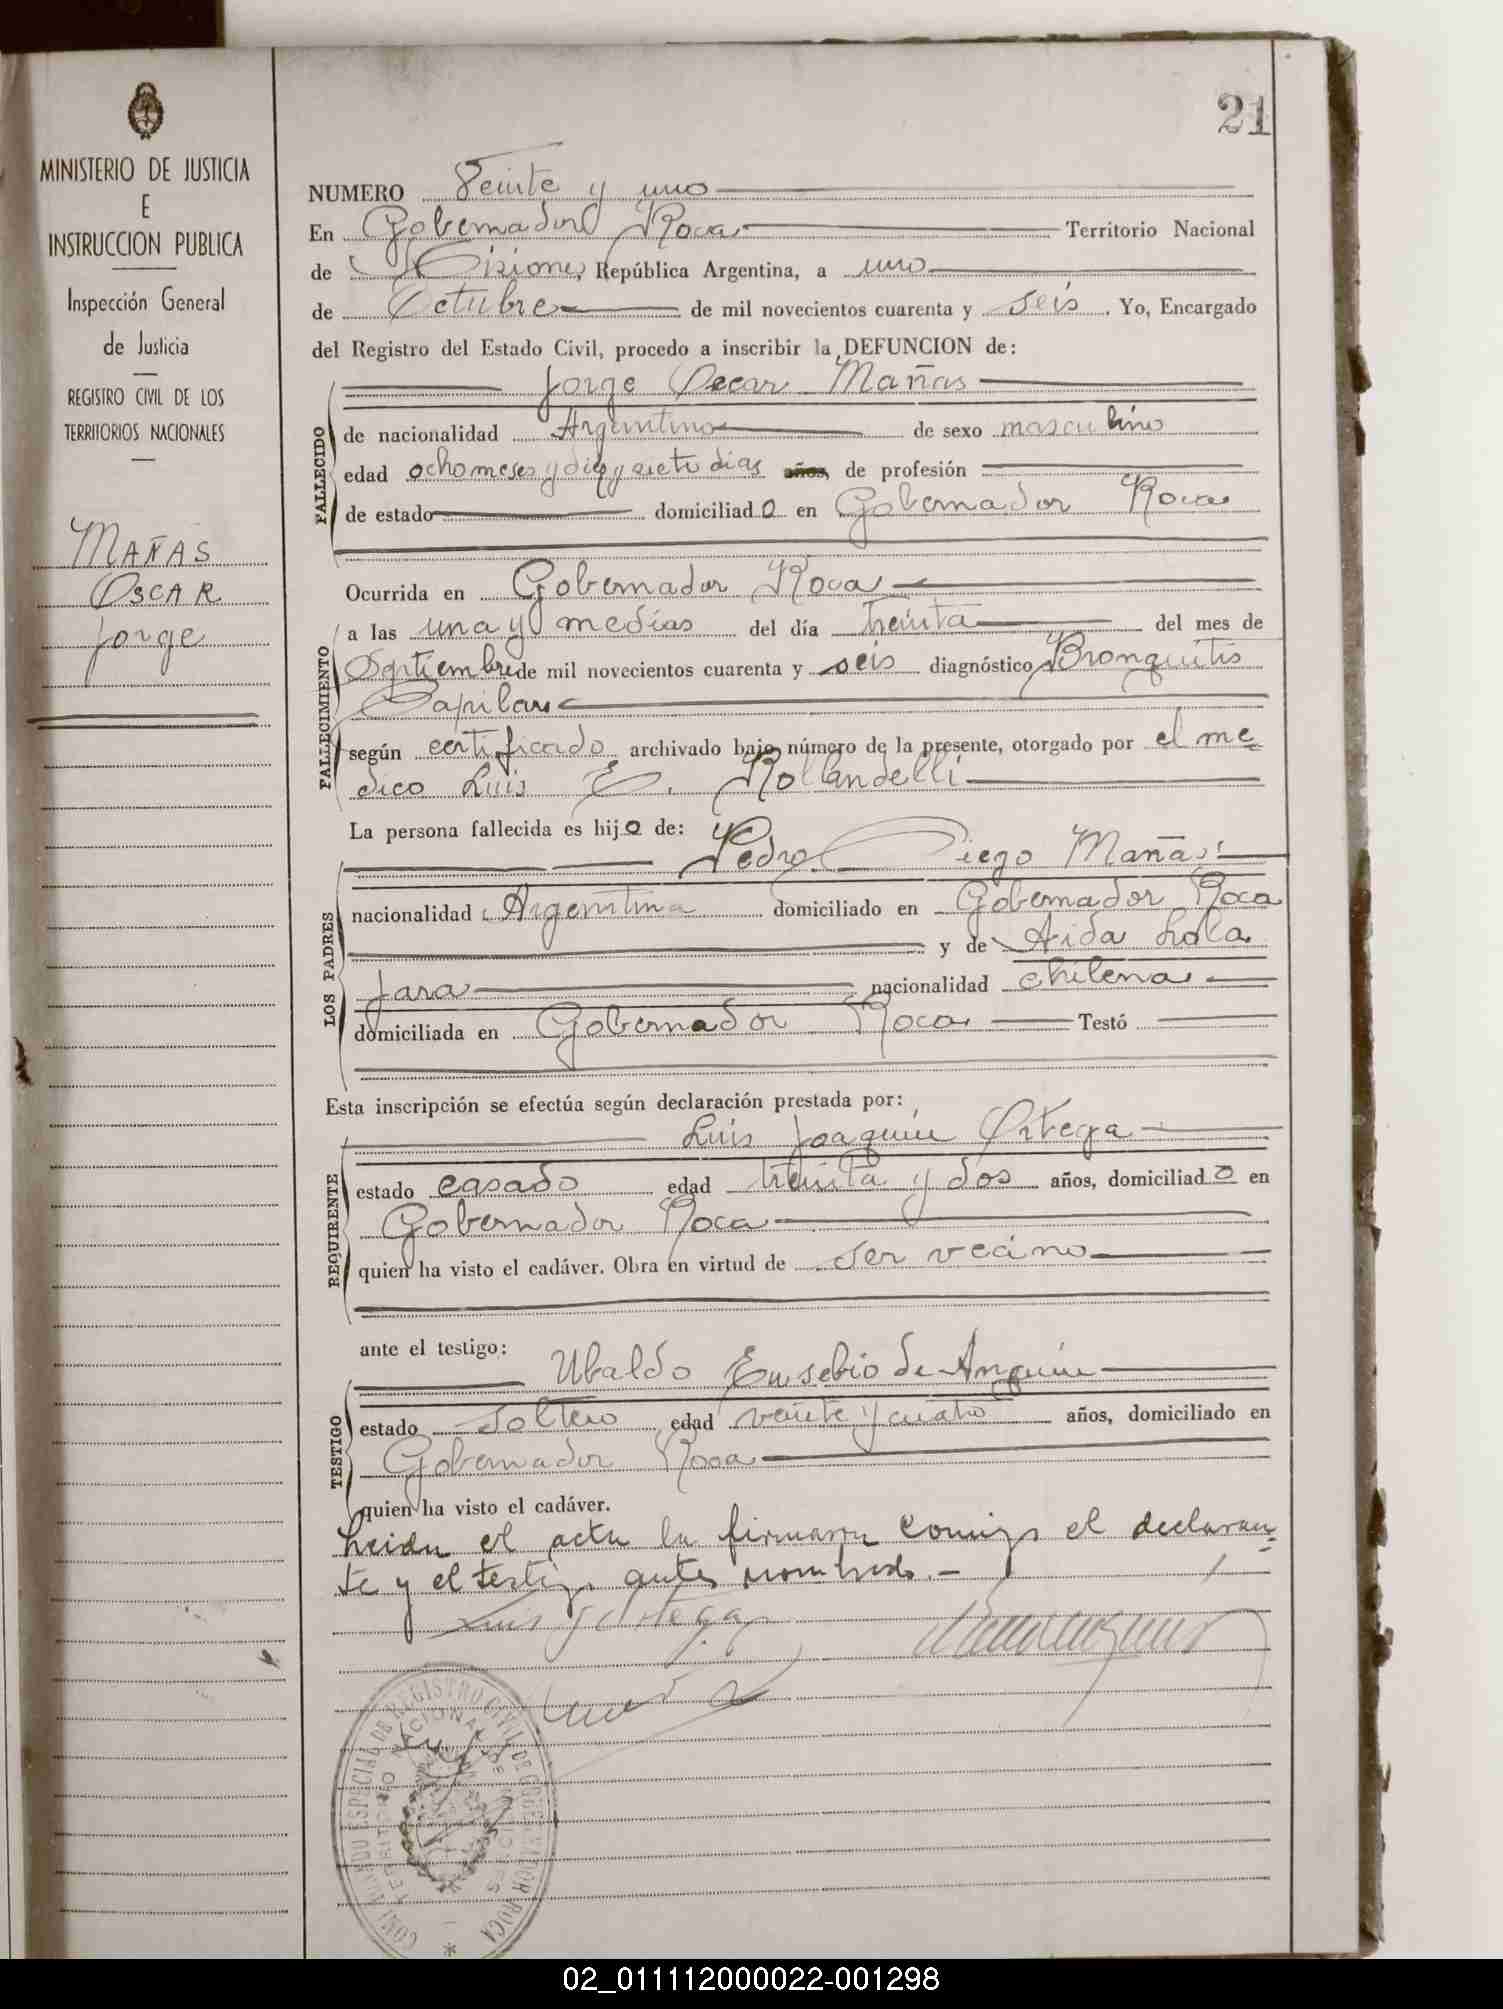 21
MINISTERIO DE JUSTICIA
E
INSTRUCCION PUBLICA
Inspección General
de Justicia
REGISTRO CIVIL DE LOS
TERRITORIOS NACIONALES
MAÑAS
OSCAR
Jorge
NUMERO Veinte y uno
En Gobernador Roca Territorio Nacional
de Misiones, República Argentina, a uno
de Octubre de mil novecientos cuarenta y seis. Yo, Encargado
del Registro del Estado Civil, procedo a inscribir la DEFUNCION de:
FALLECIDO
Jorge Oscar Mañas
de nacionalidad Argentino de sexo masculino
edad ocho meses y diez y siete dias años, de profesión
de estado domiciliado en Gobernador Roca
FALLECIMIENTO
Ocurrida en Gobernador Roca
a las una y medias del día treinta del mes de
Septiembre de mil novecientos cuarenta y seis diagnóstico Bronquitis
Capilar
según certificado archivado bajo número de la presente, otorgado por el me
dico Luis E. Rollandelli
La persona fallecida es hijo de:
LOS PADRES
Pedro Diego Mañas
nacionalidad Argentina domiciliado en Gobernador Roca
y de Aida Lola
Jara nacionalidad chilena
domiciliada en Gobernador Roca Testó
Esta inscripción se efectúa según declaración prestada por:
REQUIRENTE
Luis Joaquin Ortega
estado casado edad treinta y dos años, domiciliado en
Gobernador Roca
quien ha visto el cadáver. Obra en virtud de ser vecino
ante el testigo:
TESTIGO
Ubaldo Eusebio de Anquin
estado soltero edad veinte y cuatro años, domiciliado en
Gobernador Roca
quien ha visto el cadáver.
Leida el acta la firmaron conmigo el declaran
te y el testigo antes nombrado.-
Luis J Ortega
REGISTRO CIVIL DE GOBERNADOR ROCA
02_011112000022-001298